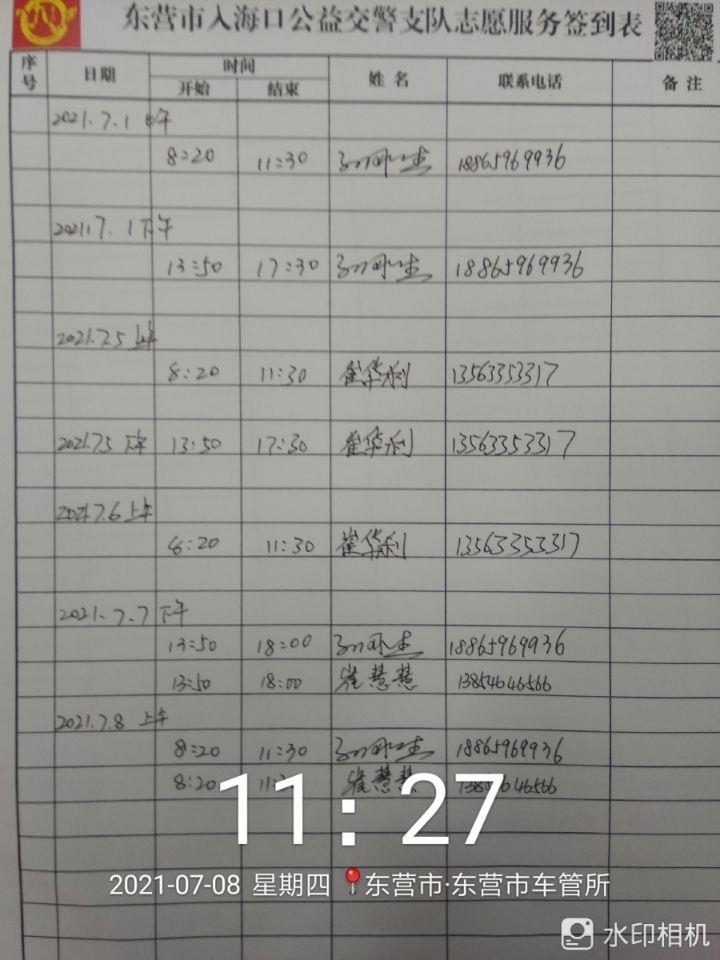 东营市入海口公益交警支队志愿服务签到表
序号 日期 时间 姓名 联系电话 备注
开始 结束
2021.7.1 上午
8:20 11:30 18865969936
2021.7.1 下午
13:50 17:30 18865969936
2021.7.5 上午
8:20 11:30 崔华利 13563353317
2021.7.5 下午 13:50 17:30 崔华利 13563353317
2021.7.6 上午
8:20 11:30 崔华利 13563353317
2021.7.7 下午
13:50 18:00 18865969936
13:50 18:00 崔慧慧 13854646566
2021.7.8 上午
8:20 11:30 18865969936
8:20 崔慧慧
11:27
2021-07-08 星期四 东营市·东营市车管所
水印相机